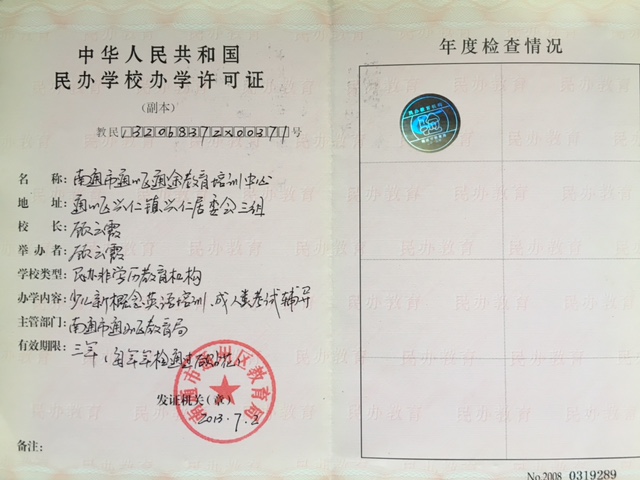 中华人民共和国
民办学校办学许可证
(副本)
教民 号
名 称：南通市通州区通途教育培训中心
地 址：通州区兴仁镇兴仁居委会三组
校 长：顾云霞
举 办 者：顾云霞
学校类型：民办非学历教育机构
办学内容：少儿新概念英语培训、成人类考试辅导
主管部门：南通市通州区教育局
有效期限：三年
南通市通州区教育局
发证机关(章)
2013.7.2
备注：
年度检查情况
No.2008 0319289